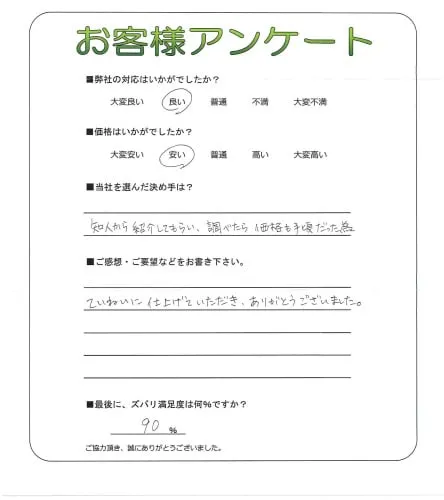 お客様アンケート
■弊社の対応はいかがでしたか?
大変良い 良い 普通 不満 大変不満
■価格はいかがでしたか?
大変安い 安い 普通 高い 大変高い
■当社を選んだ決め手は?
知人から紹介してもらい、調べたら価格も手頃だった為
■ご感想・ご要望などをお書き下さい。
ていねいに仕上げていただき、ありがとうございました。
■最後に、ズバリ満足度は何%ですか?
90 %
ご協力頂き、誠にありがとうございました。